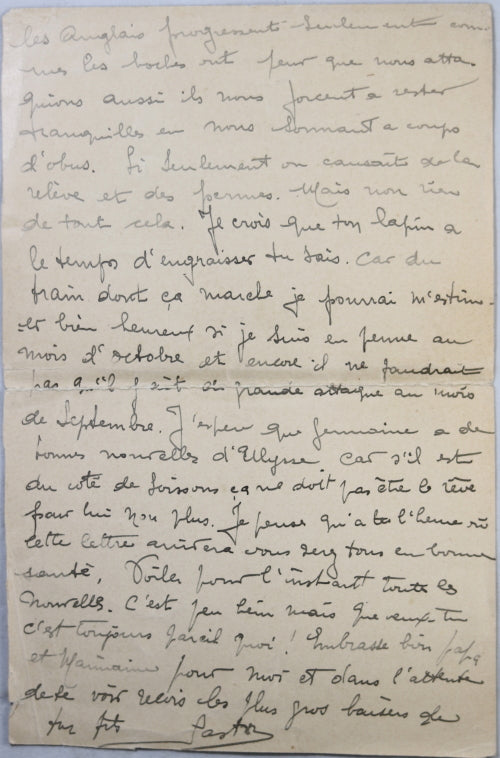 les Anglais progressent seulement com-
mes les boches ont peur que nous atta-
quions aussi ils nous forcent à rester
tranquilles en nous sonnant a coups
d'obus. Si seulement on causait de la
relève et des permes. Mais non rien
de tout cela. Je crois que ton lapin a
le temps d'engraisser tu sais. Car du
train dont ça marche je pourrai m'estim-
er bien heureux si je suis en perme au
mois d'octobre et encore il ne faudrait
pas qu'il y ait de grande attaque au mois
de Septembre. J'espère que Germaine a de
bonnes nouvelles d'Ulysse car s'il est
du coté de Soissons ça ne doit pas être le rêve
pour lui non plus. Je pense qu'a l'heure où
cette lettre arrivera vous serez tous en bonne
santé. Voilà pour l'instant toutes les
nouvelles. C'est peu hein mais que veux-tu
c'est toujours pareil quoi ! Embrasse bien papa
et Mamaine pour moi et dans l'attente
de te voir reçois les plus gros baisers de
ton fils Gaston